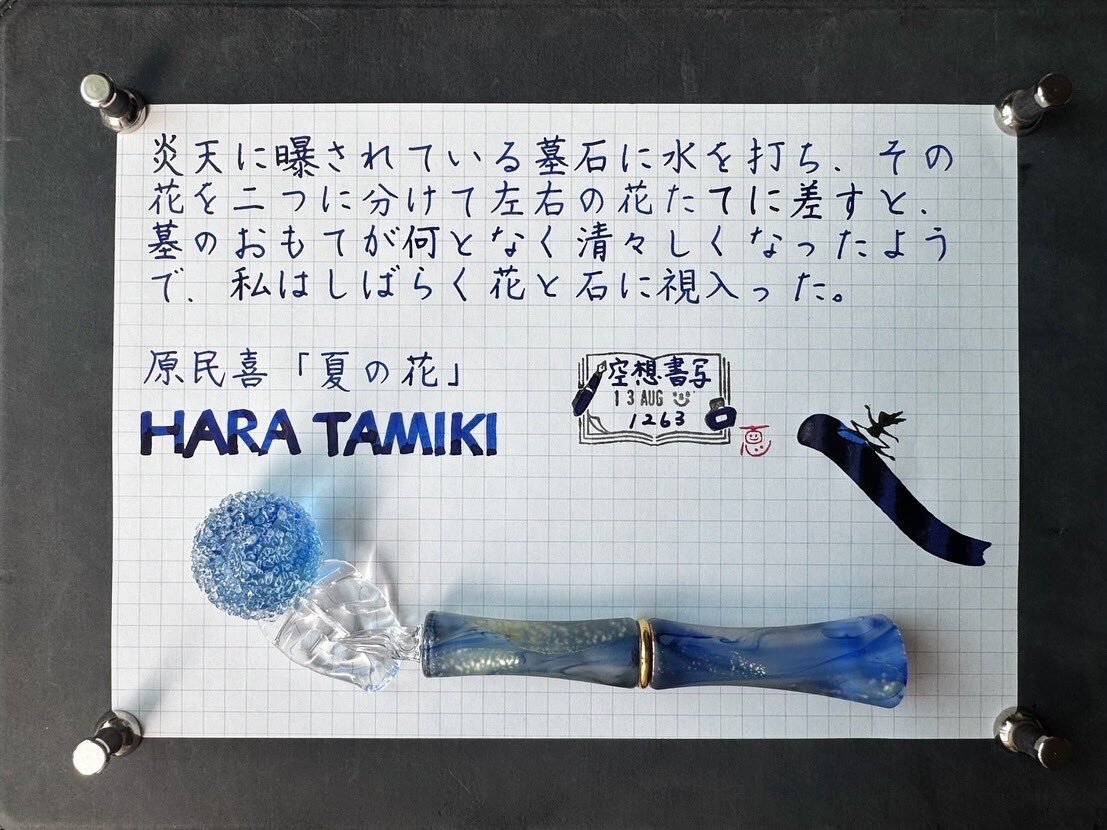 炎天に曝されている墓石に水を打ち、その
花を二つに分けて左右の花たてに差すと、
墓のおもてが何となく清々しくなったよう
で、私はしばらく花と石に視入った。
原民喜「夏の花」
HARA TAMIKI
空想書写
13 AUG
1263
恵